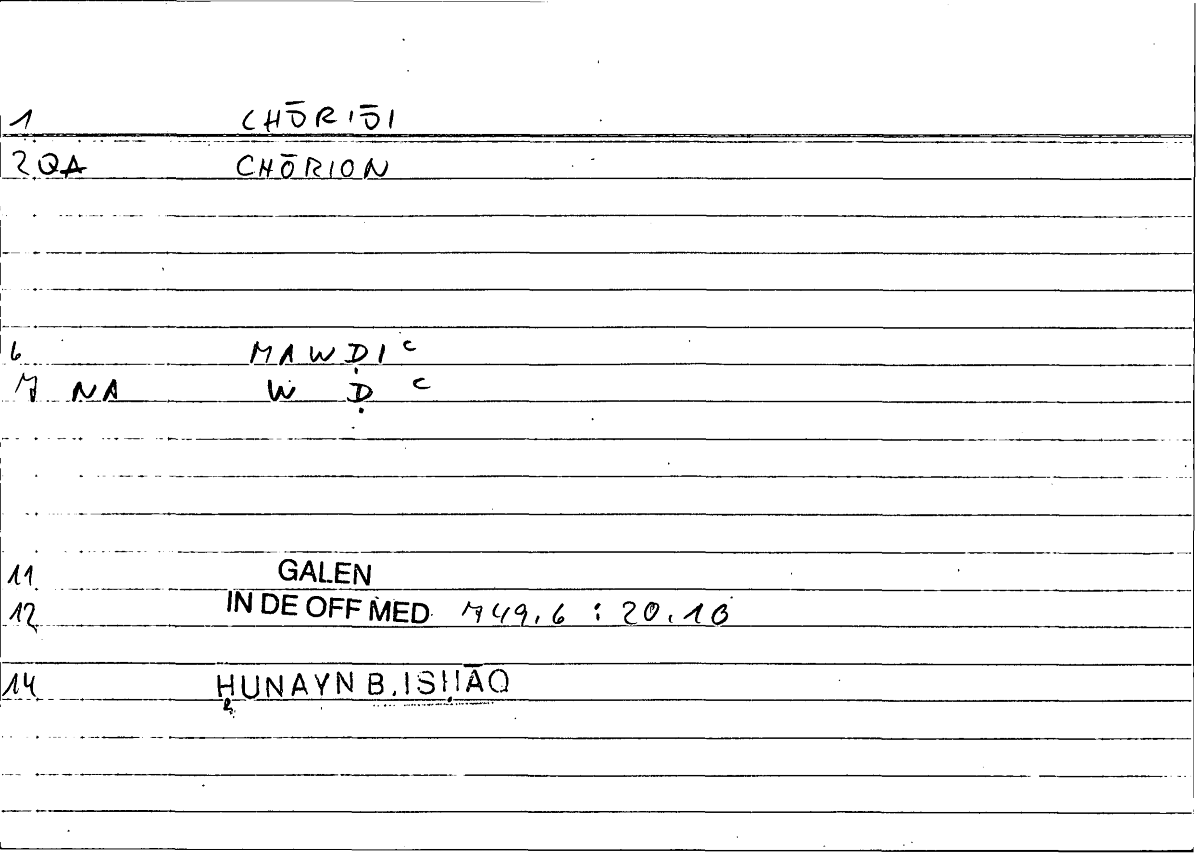 1 CHŌRIŌI
2 QA CHŌRION
6 MAWḌIᶜ
7 NA W Ḍ ᶜ
11 GALEN
12 IN DE OFF MED 749.6 : 20.10
14 ḤUNAYN B. ISḤĀQ